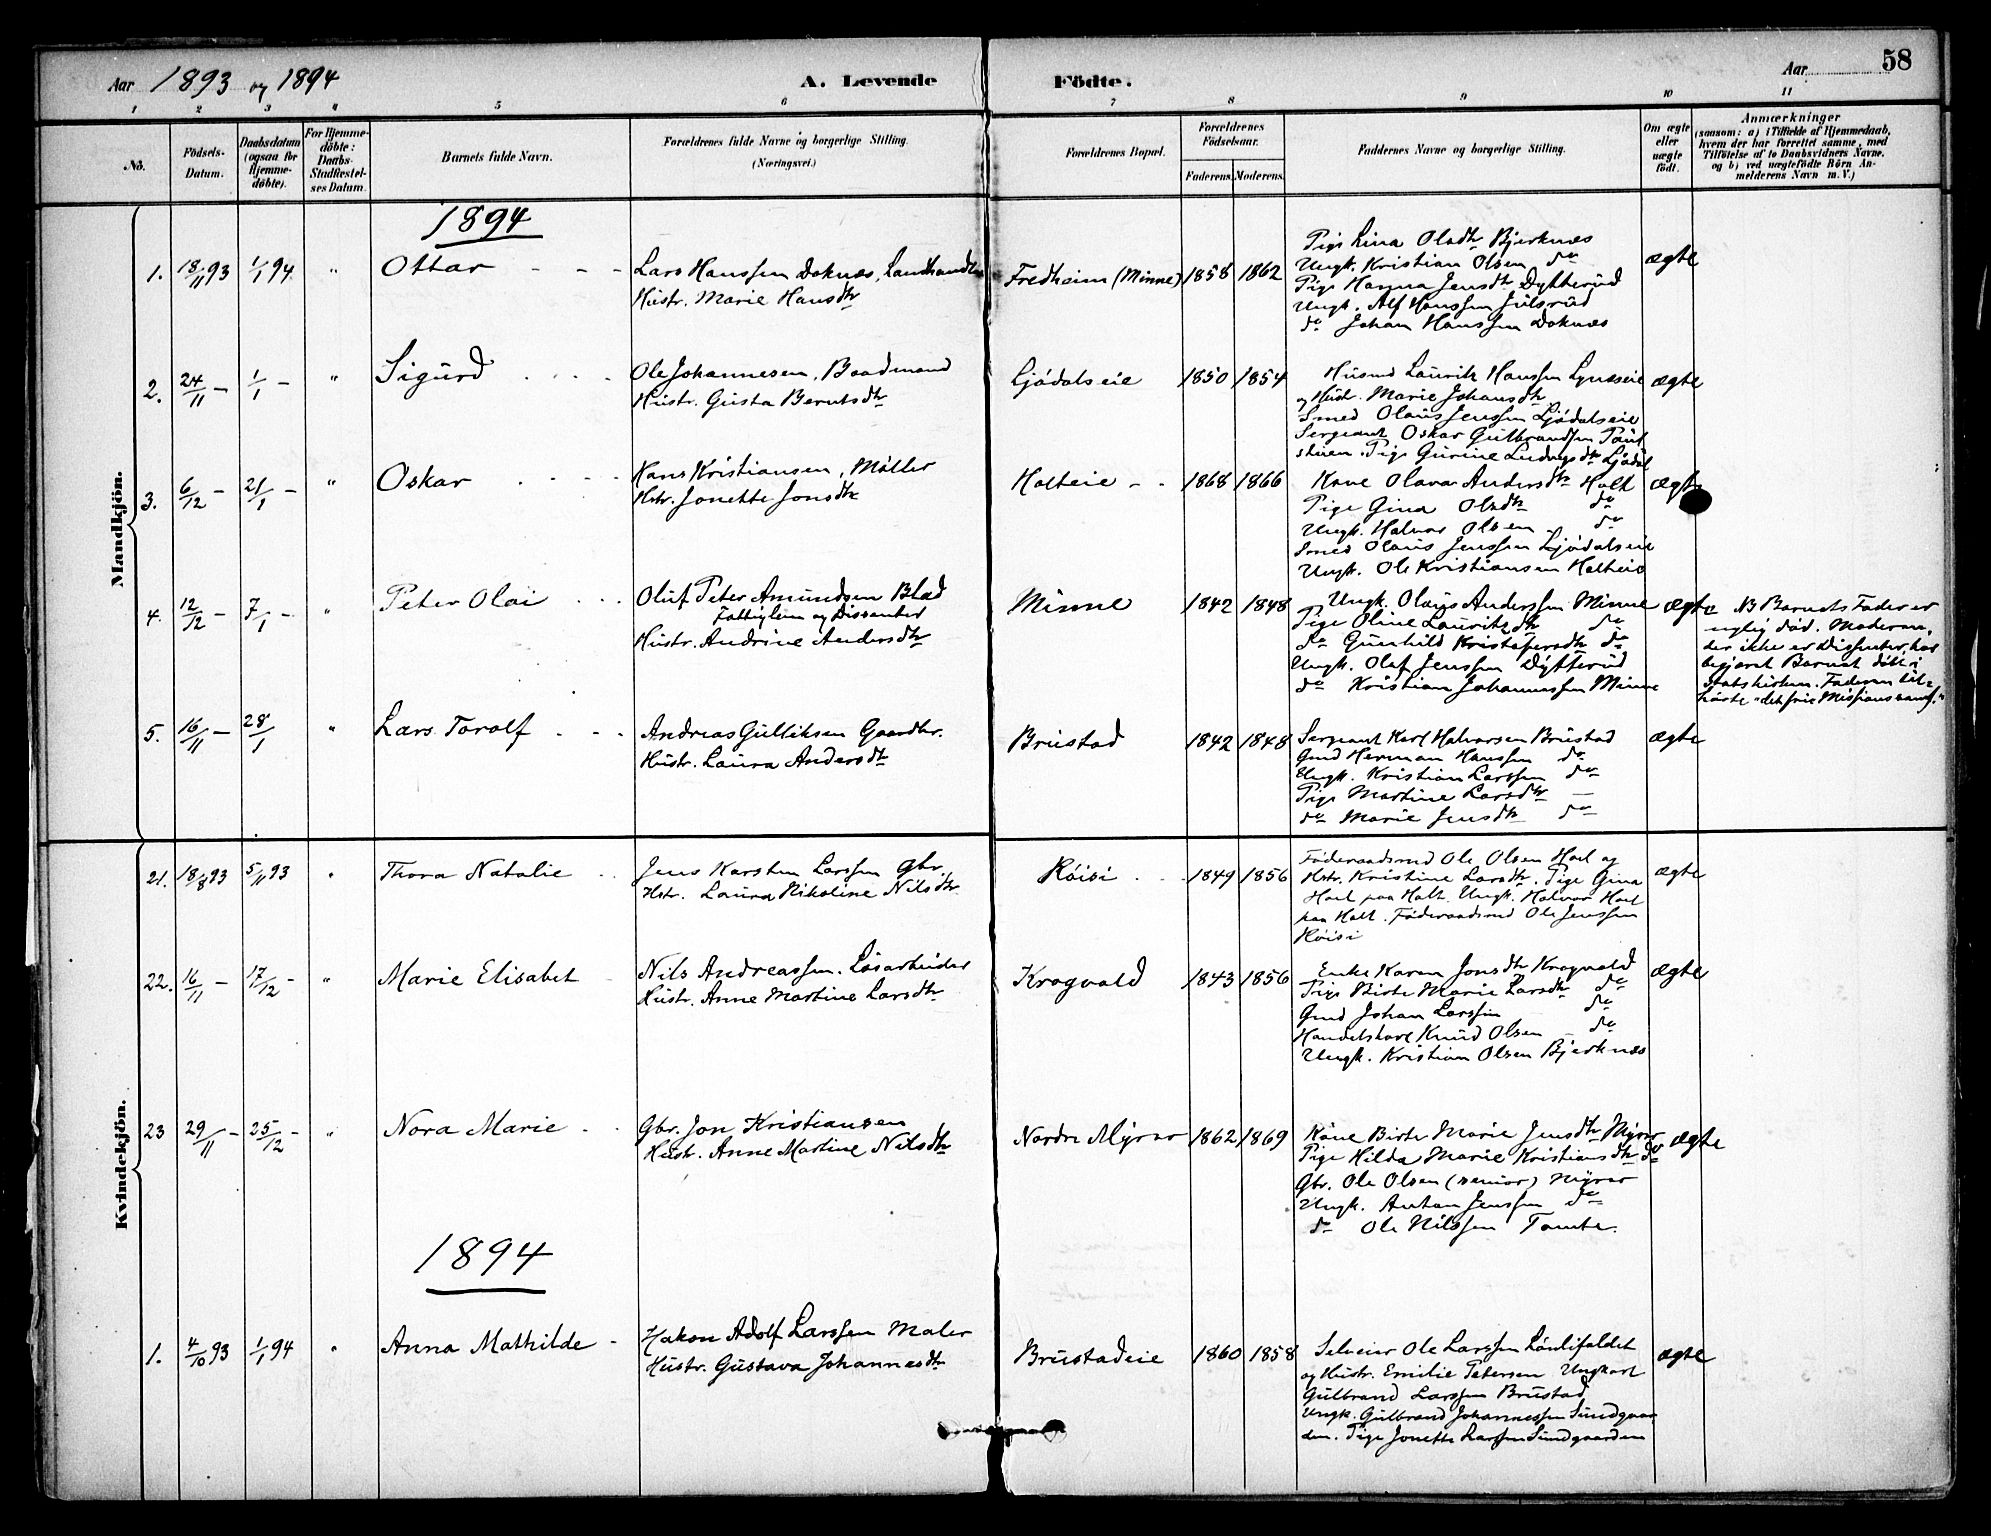 Aar 1893 og 1894 A. Levende Födte. Aar 58
1 2 3 " 5 6 7 8 9 10 11
No. Födsels-Datum. Daabsdatum (ogsaa for Hjemme-döbte). For Hjemme-döbte: Daabs-Stadfæstel-ses Datum. Barnets fulde Navn. Forældrenes fulde Navne og borgerlige Stilling. (Næringsvei.) Forældrenes Bopæl. Forældrenes Födselsaar. Faderens. Moderens. Faddernes Navne og borgerlige Stilling. Om ægte eller uægte födt. Anmærkninger (saasom: a) i Tilfælde af Hjemmedaab, hvem der har forrettet samme, med Tilföielse af to Daabsvidners Navne. og b) ved uægtefödte Börn An-melderens Navn m. V.)
Mandkjön.
1894
1. 18/11 93 1/1 94 " Ottar - - -
Lars Hanssen Doknæs, Landhandler
Hustr. Marie Hansdtr
Fredheim (Minne) 1858 1862
Pige Lina Olsdtr Bjerknæs
Ungk. Kristian Olsen do
Pige Hanna Jensdtr Dytterud
Ungk. Alf Hanssen Julsrud
do Johan Hanssen Doknæs
ægte
2. 24/11 - 1/1 - " Sigurd
Ole Johannesen, Baadmand
Hustr. Gusta Berntsdtr
Ljødalseie 1850 1854
Husmd Lauritz Hanssen Lynæseie
og Hustr. Marie Johansdtr
Smed Olaus Jenssen Ljødalseie
Sergeant Oskar Gulbrandsen Paul
stuen. Pige Gurine Ludvigsdtr Ljødal
ægte
3. 6/12 - 21/1 - " Oskar
Hans Kristiansen, Møller
Hstr. Jonette Jonsdtr
Holteie - - 1868 1866
Kone Olava Andersdtr Holt
Pige Gina Olsdtr do
Ungk. Halvor Olsen do
Smed Olaus Jenssen Ljødalseie
Ungk. Ole Kristiansen Holteie
ægte
4. 12/12 - 7/1 - " Peter Olai
Oluf Peter Amundsen Blad
Fattiglem og Dissenter
Hustr. Andrine Andersdtr
Minne 1842 1848
Ungk. Olaus Anderssen Minne
Pige Oline Lauritzdtr do
do Gunhild Kristofersdtr do
Ungk. Olaf Jenssen Dytterud
do Kristian Johannessen Minne
ægte
NB Barnets Fader er
nylig død. Moderen,
der ikke er Dissenter, har
begjæret Barnet døbt i
Statskirken. Faderen til-
hørte "det frie Missionssamf."
5. 16/11 - 28/1 " Lars Torolf - - -
Andreas Gulliksen Gaardbr.
Hustr. Laura Andersdtr
Brustad 1842 1848
Sergeant Karl Halvorsen Brustad
Gmd Herman Hanssen do
Ungk. Kristian Larssen do
Pige Martine Larsdtr -
do Marie Jensdtr do
ægte
Kvindekjön.
21. 18/8 93 5/11 93 " Thora Natalie
Jens Karsten Larssen Gbr.
Hstr. Laura Nikoline Nilsdtr
Røisi 1849 1856
Føderaadsmd Ole Olsen Hoel og
Hstr. Kristine Larsdtr. Pige Gina
Hoel paa Holt. Ungk. Halvor Hoel
paa Holt. Føderaadsmd Ole Jenssen
Røisi
ægte
22. 16/11 - 17/12 - " Marie Elisabet
Nils Andreassen. Løsarbeider
Hustr. Anne Martine Larsdtr
Krogvold 1843 1856
Enke Karen Jonsdtr Krogvold
Pige Birte Marie Larsdtr do
Gmd Johan Larssen do
Handelskarl Knud Olsen - do
Ungk. Kristian Olsen Bjerknæs
ægte
23 29/11 - 25/12 - " Nora Marie
Gbr. Jon Kristiansen
Hustr. Anne Martine Nilsdtr
Nordre Myrer 1862 1869
Kone Birte Marie Jensdtr Myrer
Pige Hilda Marie Kristiansdtr do
Gbr. Ole Olsen (senior) Myrer
Ungk. Anton Jenssen do
do Ole Nilssen Tomte.
ægte
1894
1. 4/10 93 1/1 94 " Anna Mathilde -
Hakon Adolf Larssen Maler
Hustr. Gustava Johannesdtr
Brustadeie 1860 1858
Selveier Ole Larssen
og Hustr. Emilie Petersen Ungkarl
Gulbrand Larssen Brustad
Ungk. Gulbrand Johannessen Sundgaar
den. Pige Jonette Larssen Sundgaarden
ægte